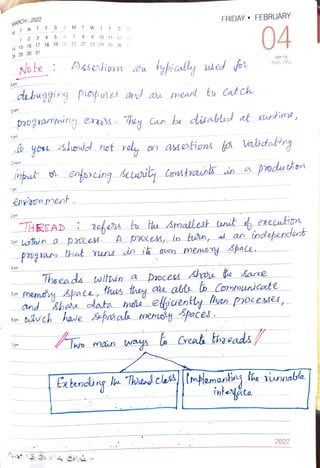 MARCH - 2022
FRIDAY • FEBRUARY
04
Note : Assertions are typically used for
debugging purposes and are meant to catch
programming errors. They can be disabled at runtime,
so you should not rely on assertions for validating
input or enforcing security constraints in a production
environment.
THREAD : refers to the smallest unit of execution
within a process. A process, in turn, is an independent
program that runs in its own memory space.
Threads within a process share the same
memory space, thus they are able to communicate
and share data more efficiently than processes,
which have separate memory spaces.
Two main ways to create threads
Extending the Thread class
Implementing the runnable
interface
2022